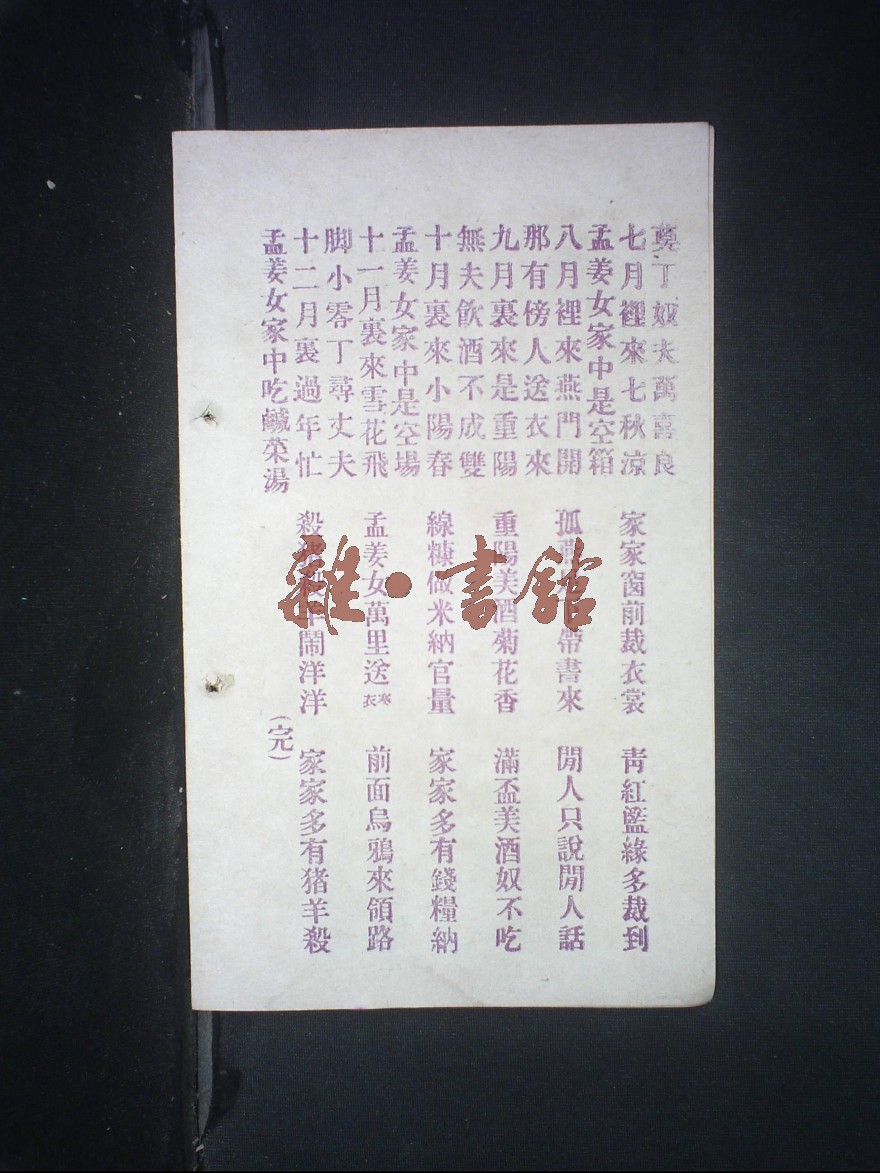 丁奴夫萬喜良
七月裡來七秋凉　家家窗前裁衣裳　青紅藍緣多裁到
孟姜女家中是空箱
八月裡來燕門開　孤燕帶書來　閒人只說閒人話
那有傍人送衣來
九月裏來是重陽　重陽美酒菊花香　滿盃美酒奴不吃
無夫飲酒不成雙
十月裏來小陽春　線糠做米納官量　家家多有錢糧納
孟姜女家中是空場
十一月裏來雪花飛　孟姜女萬里送寒衣　前面烏鴉來領路
脚小零丁尋丈夫
十二月裏過年忙　殺猪殺羊鬧洋洋　家家多有猪羊殺
孟姜女家中吃鹹菜湯　(完)
雜·書館